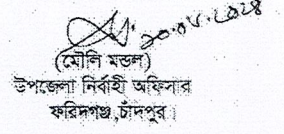 ২০.০৮.২০২৪
(মৌলি মন্ডল)
উপজেলা নির্বাহী অফিসার
ফরিদগঞ্জ, চাঁদপুর।